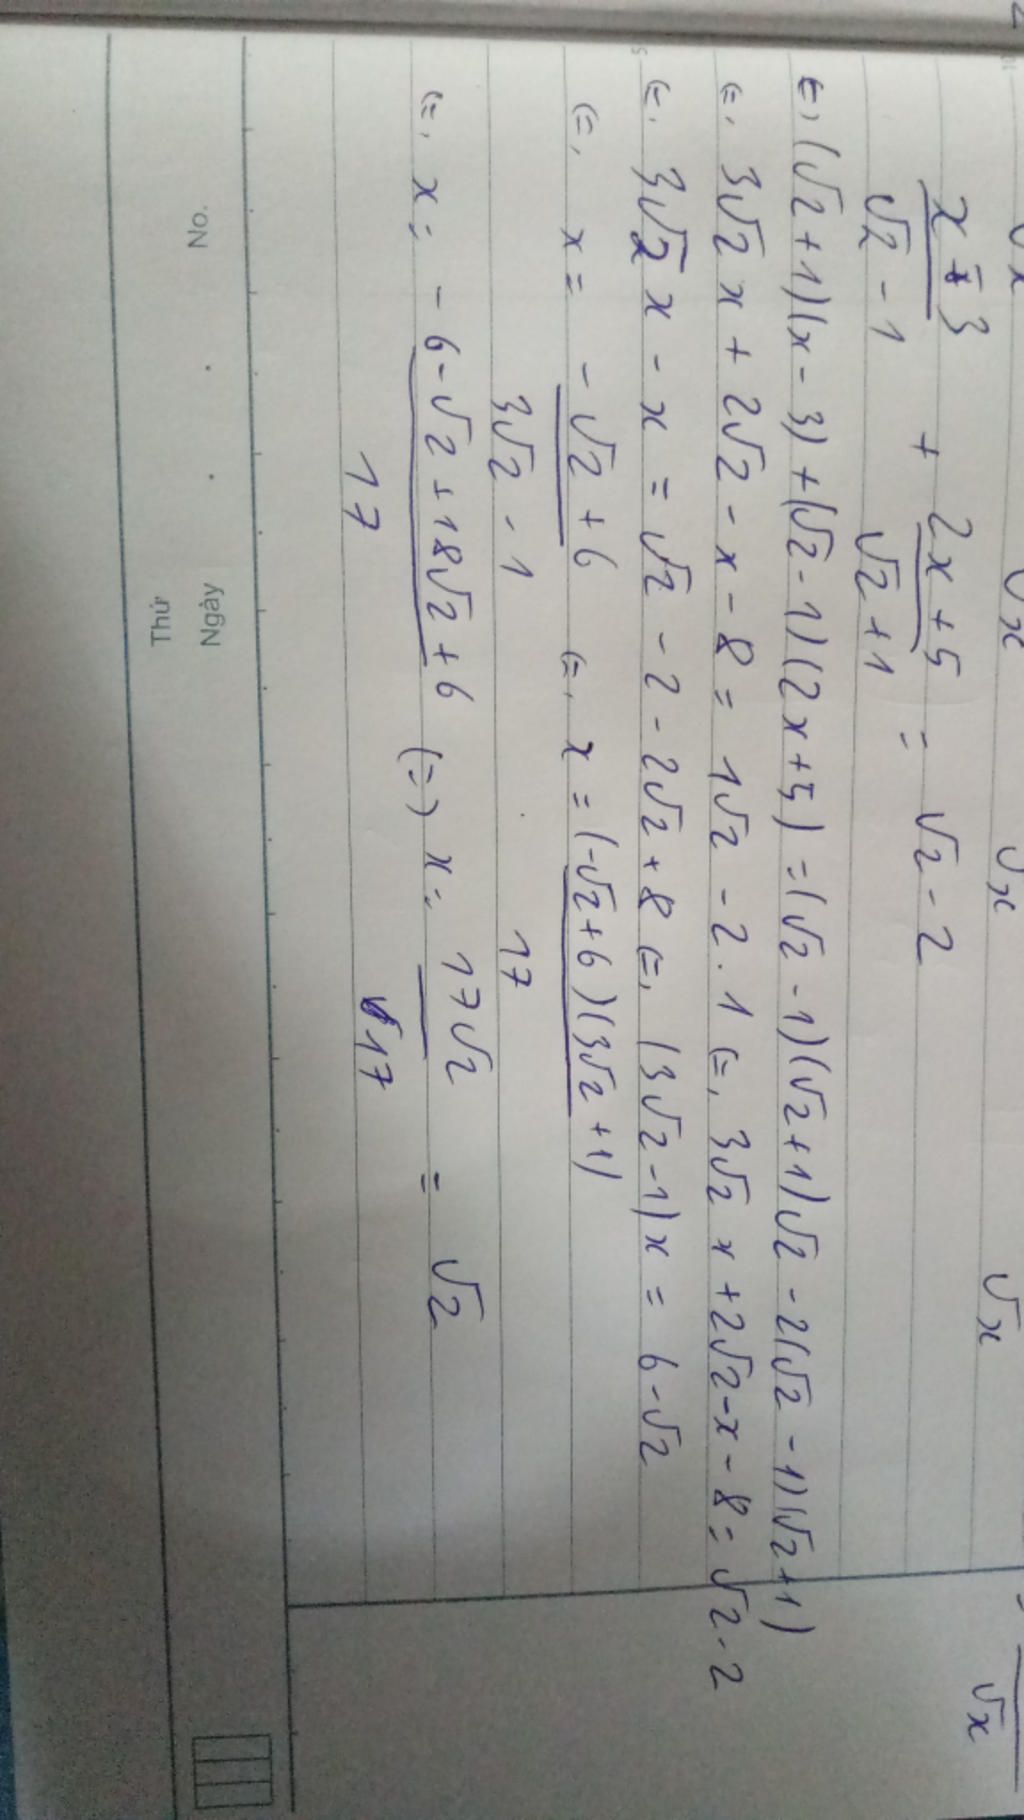 √x √x √x √x √x
x - 3 / √2 - 1 + 2x + 5 / √2 + 1 = √2 - 2
(=) (√2 + 1)(x - 3) + (√2 - 1)(2x + 5) = (√2 - 1)(√2 + 1)√2 - 2(√2 - 1)(√2 + 1)
(=) 3√2 x + 2√2 - x - 8 = 1√2 - 2 . 1 (=) 3√2 x + 2√2 - x - 8 = √2 - 2
(=) 3√2 x - x = √2 - 2 - 2√2 + 8 (=) (3√2 - 1)x = 6 - √2
(=) x = - √2 + 6 / 3√2 - 1 (=) x = (-√2 + 6)(3√2 + 1) / 17
(=) x = - 6 - √2 + 18√2 + 6 / 17 (=) x = 17√2 / 17 = √2
Thứ
Ngày
No.